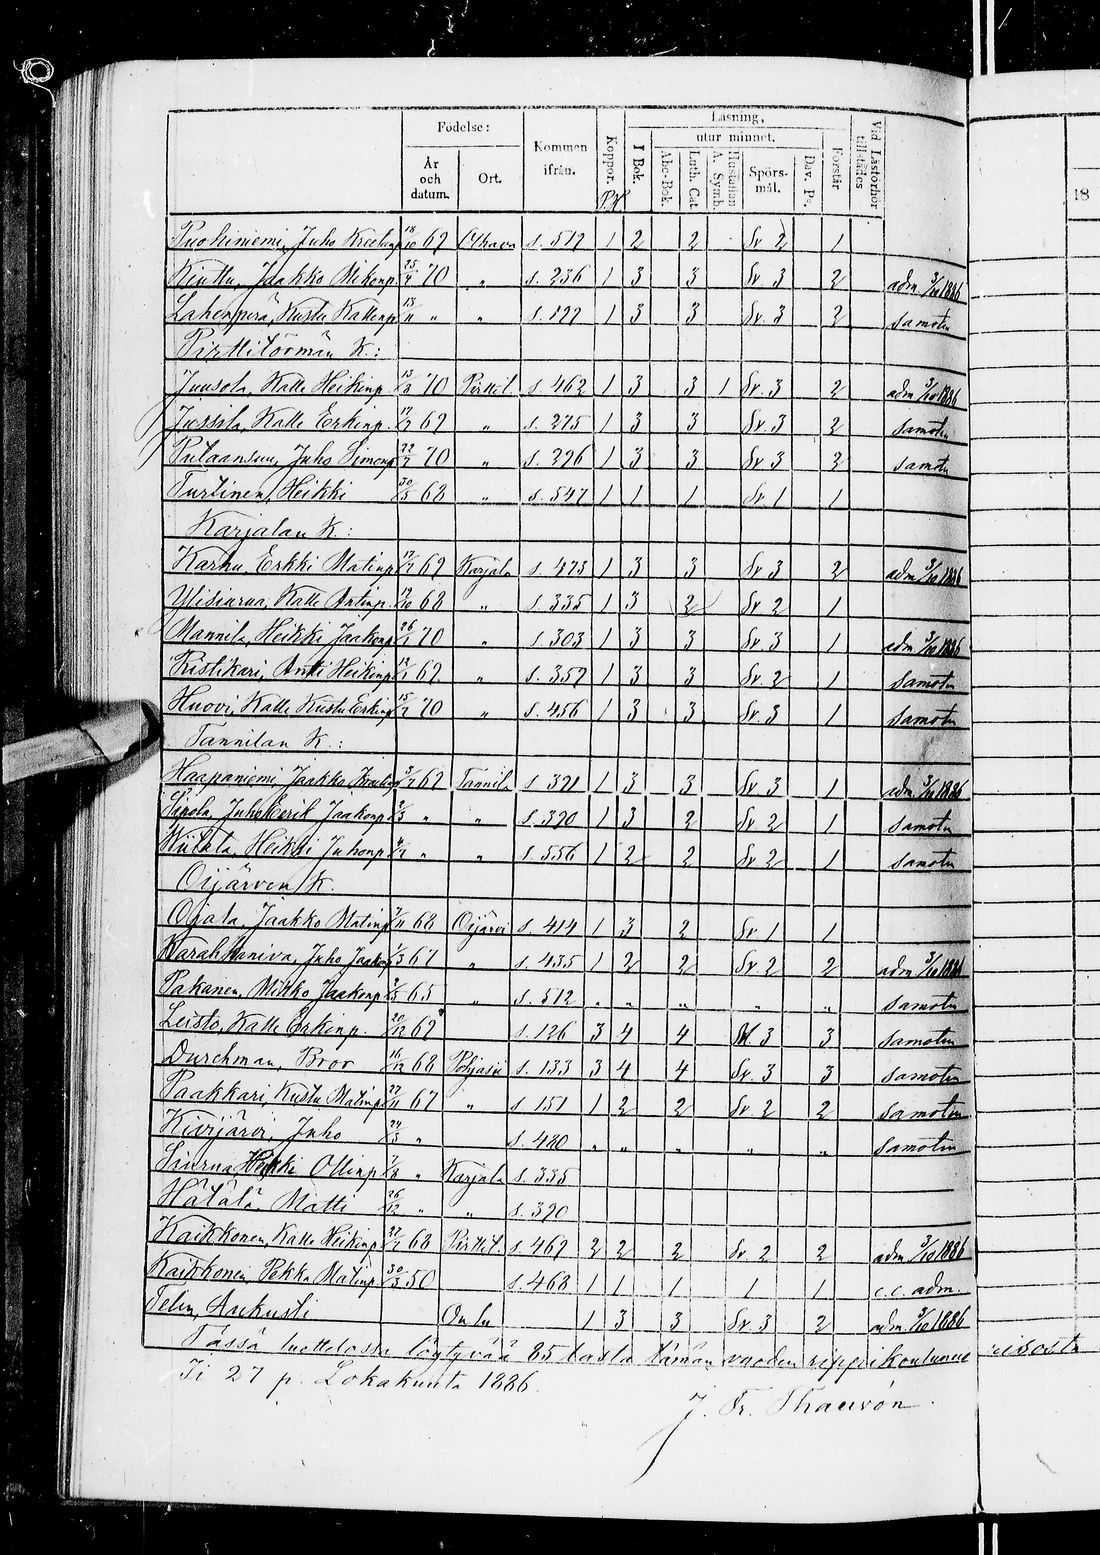 Födelse: Kommen ifrån. Koppor. Läsning, utur minnet. Vid Läsförhör tillstädes
År och datum. Ort. I Bok. Abc-Bok. Luth. Cat. Hustaflan A. Symb. Spörs-mål. Dav. Ps. Förstår
18
Puoliniemi, Juho 18/10 69 s. 519 1 2 2 Sv 2 1
Kinttu, Jaakko Mikonp. 25/4 70 " s. 236 1 3 3 Sv 3 2 adm 3/10 1886
Lahenperä, Kustu Kallenp 13/11 " " s. 199 1 3 3 Sv. 3 2 samoten
Pirttitörmän K.:
Juusola, Kalle Heikinp. 13/3 70 Pirttit s. 462 1 3 3 1 Sv. 3 2 adm 3/10 1886
Jussila, Kalle Erkinp. 17/2 69 " s. 275 1 3 3 Sv. 3 2 samoten
Putaansuu, Juho Simonp 22/7 70 " s. 296 1 3 3 Sv 3 2 samoten
Turtinen, Heikki 30/5 68 " s. 547 1 1 1 Sv. 1 1
Karjalan K.:
Karhu, Erkki Matinp 17/7 69 Karjala s. 473 1 3 3 Sv 3 2 adm 3/10 1886
Kalle Antinp. 17/10 68 " s. 335 1 3 2 Sv 2 1
Mannila, Heikki Jaakonp 26/1 70 " s. 303 1 3 3 Sv 3 1 adm 3/10 1886
Ristikari, Antti Heikinp 69 " s. 359 1 3 3 Sv. 2 1 samoten
Huovi, Kalle Kustu Erkinp 15/2 70 " s. 456 1 3 3 Sv. 3 1 samoten
Tannilan K.:
Haapaniemi, Jaakko 69 Tannila s. 391 1 3 3 Sv 3 1 adm 3/10 1886
Sipola, Juho Eerik Jaakonp 2/3 " " s. 390 1 3 2 Sv 2 1 samoten
Heikki Juhonp " " s. 556 1 2 2 Sv 2 1 samoten
Oijärven K.
Ojala, Jaakko Matinp 68 Oijärvi s. 414 1 3 2 Sv 1 1
Juho Jaakonp 1/3 67 " s. 435 1 2 2 Sv 2 2 adm 3/10 1886
Pakanen, Mikko Jaakonp 65 " s. 512 " " " " " samoten
Leisto, Kalle Erkinp. 20/12 69 s. 126 3 4 4 3 3 samoten
Durchman, Bror 16/12 68 Pohjasii s. 133 3 4 4 Sv. 3 3 samoten
Paakkari, Kustu Matinp 27/11 67 " s. 151 1 2 2 Sv 2 2 samoten
Kivijärvi, Juho 24/3 " s. 480 " " " " " samoten
Siurua, Heikki Ollinp " Karjala s. 335
Hätälä Matti 26/12 " " s. 390
Kaikkonen, Kalle Heikinp 27/7 68 Pirttit. s. 469 2 2 2 Sv 2 2 adm 3/10 1886
Kaikkonen, Pekka Matinp 30/3 50 s. 468 1 1 1 1 1 c.c. adm.
Aukusti Oulu 1 3 3 Sv. 3 2 adm. 3/10 1886
Tässä luettelossa löytyvää 85 lasta tämän vuoden rippikoulunus
Ii 27 p. Lokakuuta 1886.
J. Fr. Thauvón.